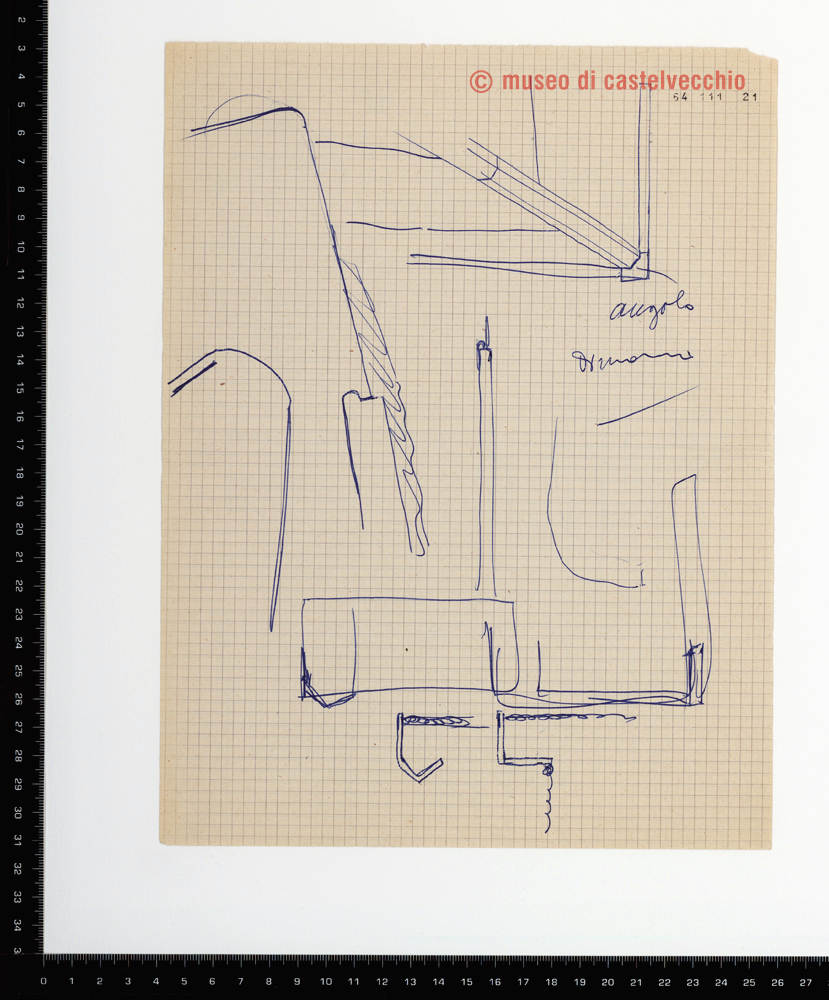 © museo di castelvecchio
64 111 21
angolo
2
3
4
5
6
7
8
9
10
11
12
13
14
15
16
17
18
19
20
21
22
23
24
25
26
27
28
29
30
31
32
33
34
3
0 1 2 3 4 5 6 7 8 9 10 11 12 13 14 15 16 17 18 19 20 21 22 23 24 25 26 27